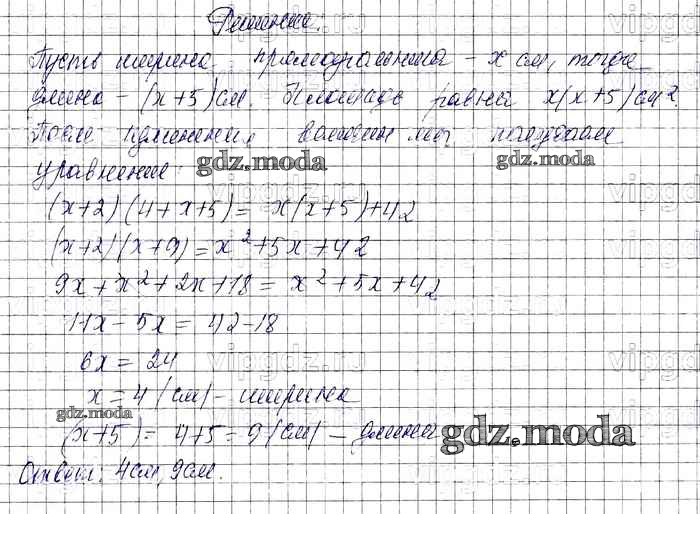 Решение.
Пусть ширина прямоугольника – x см, тогда
длина – (x+5) см. Площадь равна x(x+5) см².
После изменения величин мы получаем
уравнение:
(x+2)(4+x+5) = x(x+5)+42
(x+2)(x+9) = x²+5x+42
9x + x² + 2x + 18 = x² + 5x + 42
11x – 5x = 42–18
6x = 24
x = 4 (см) – ширина
(x+5) = 4+5 = 9 (см) – длина
Ответ: 4см, 9см.
gdz.moda
gdz.moda
gdz.moda
gdz.moda
vipgdz.ru
vipgdz.ru
vipgdz.ru